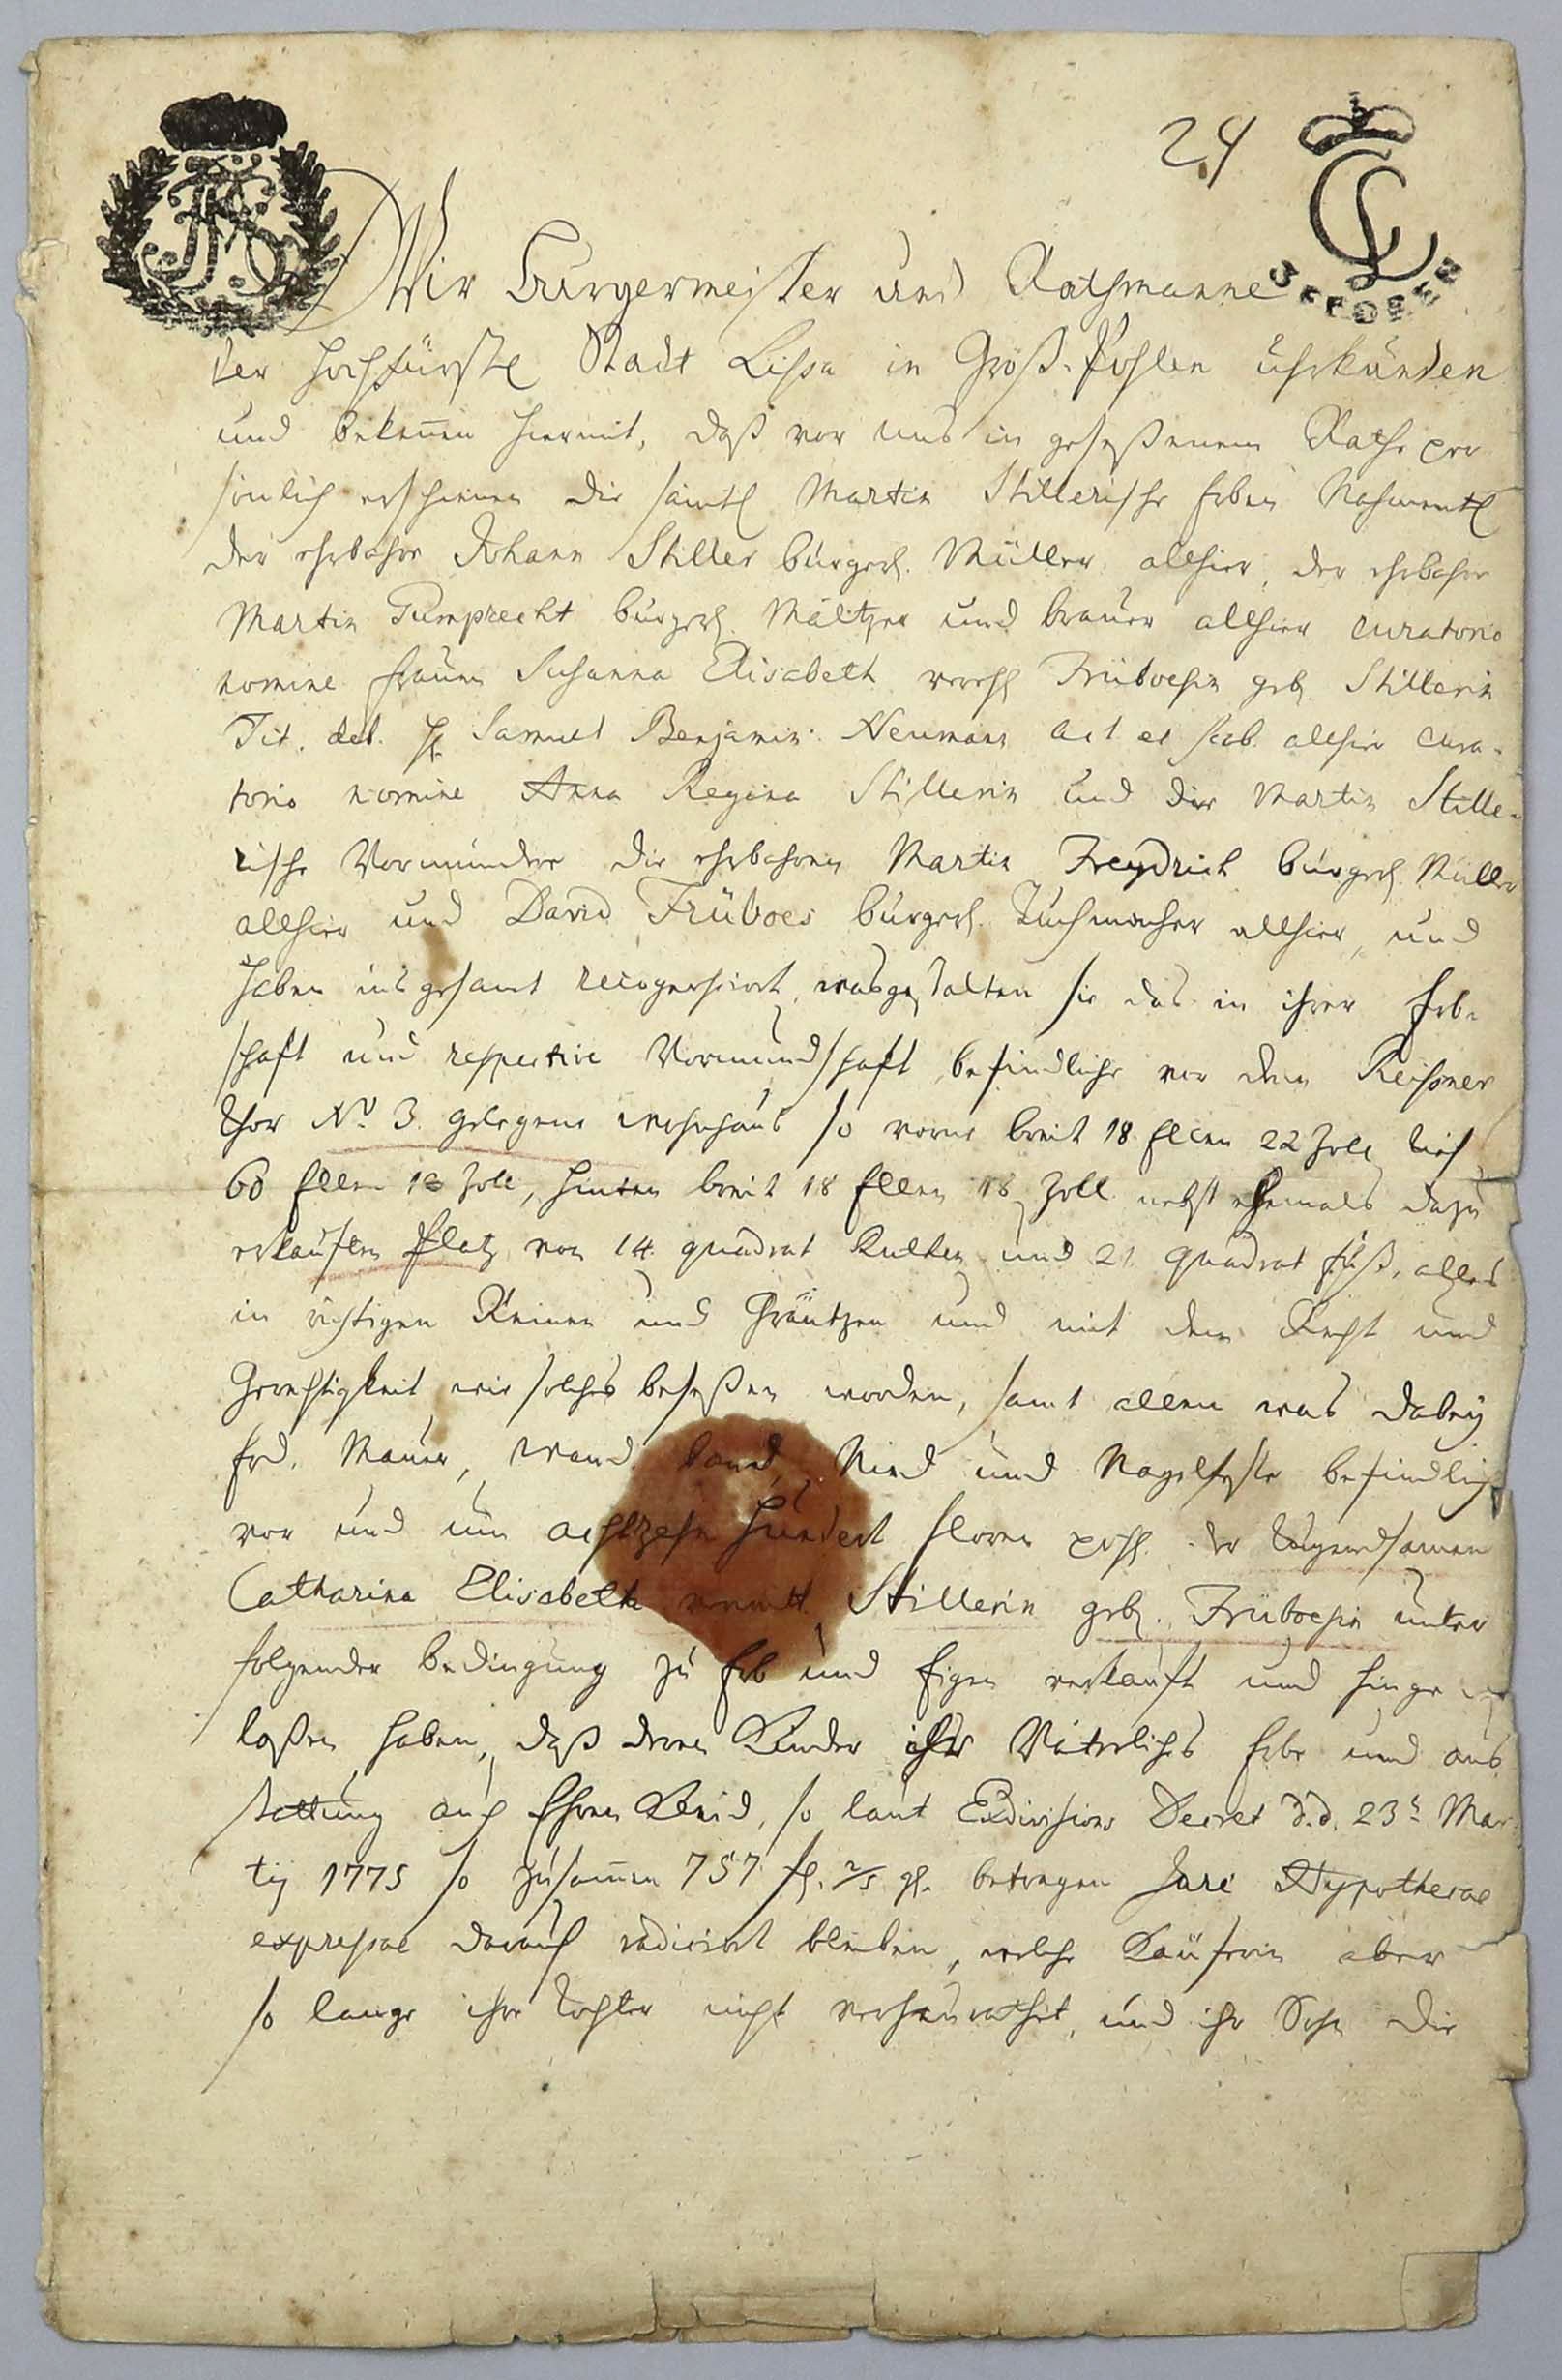 24
3 GROSCHEN
Wir Burgermeister und Rathmanne
der Hochfürstl Stadt Lissa in Groß-Pohlen uhrkunden
und bekeñen hiermit, daß vor uns in geseßenem Rathe per
söhnlich erschienen die sämtl Martin Stillerische Erben Nahmentl
der ehrbahre Johann Stiller bürgerl. Müller allhier, der ehrbahre
Martin Gumprecht bürgerl. Mältzer und brauer allhier curatorio
nomine frauen Susanna Elisabeth verehl Früboesin geb. Stillerin
Tit. deb. H. Samuel Benjamin Neumann Act et scab. allhier cura-
torio nomine Anna Regina Stillerin und die Martin Stille-
rische Vormünder die ehrbahren Martin Freydrich bürgerl. Müller
allhier und David Früboes bürgerl. Tuchmacher allhier, und
haben ins gesamt recognosciert, wasgestalten sie das in ihrer Erb-
schaft und respective Vormundschaft befindliche vor dem Reisner
Thor No. 3. gelegene wohnhaus so vorne breit 18 Ellen 22 Zoll tief
60 Ellen 18 Zoll, hinten breit 18 Ellen 18 Zoll nebst ehemals dazu
erkauften Platz von 14. quadrat Ruthen und 21 quadrat fuß, alles
in richtigen Reinen und Gräntzen und mit dem Recht und
Gerechtigkeit wie solches beseßen worden, samt allem was dabey
Erd, Mauer, Wand, band, Nied und Nagelfeste befindlich
vor und um achtzehn Hundert floren pohl. der tugendsamen
Catharina Elisabeth verwitt. Stillerin geb. Früboesin unter
folgender bedingung zu Erb und Eigen verkauft und hinge
laßen haben, daß deren Kinder ihr Väterliches Erbe und aus
stattung auch Ehren Kleid, so laut Exdivisions Decret d.d. 23t Mar
tij 1775 so zusam̃en 757 fl. 2/5 gl. betragen Jure Hypothecae
expressae darauf radiciret bleiben, welche Käuferin aber
so lange ihre Tochter nicht verheurathet, und ihr Sohn die